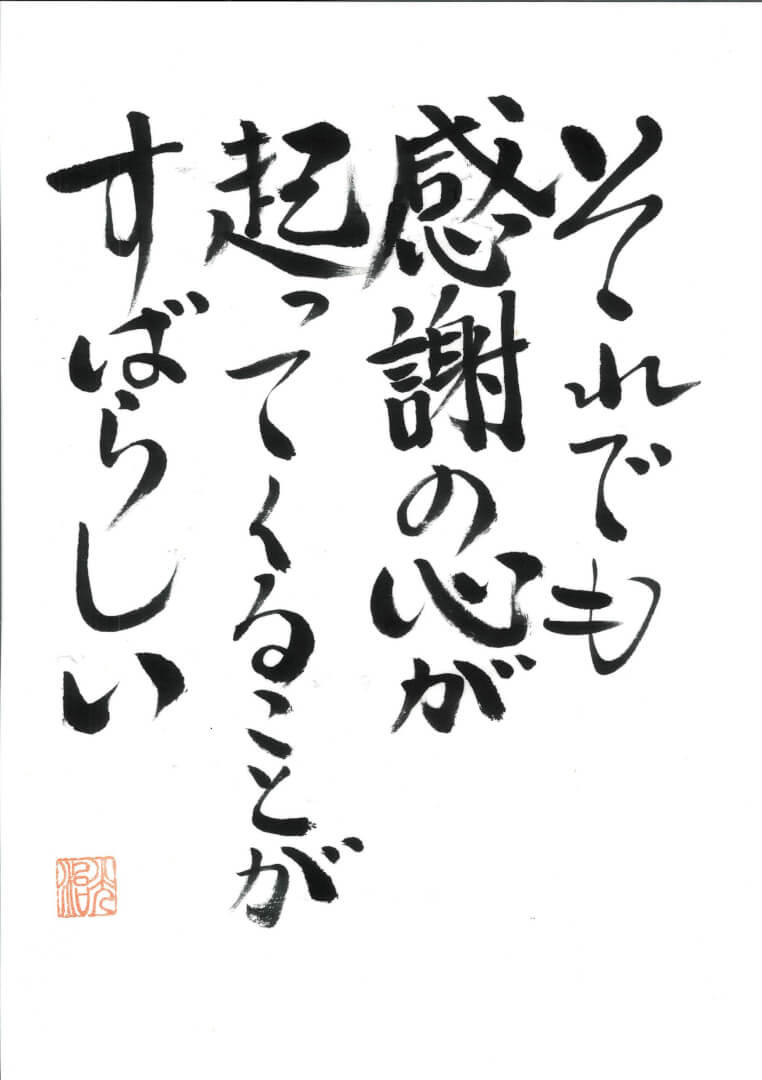 それでも
感謝の心が
起ってくることが
すばらしい